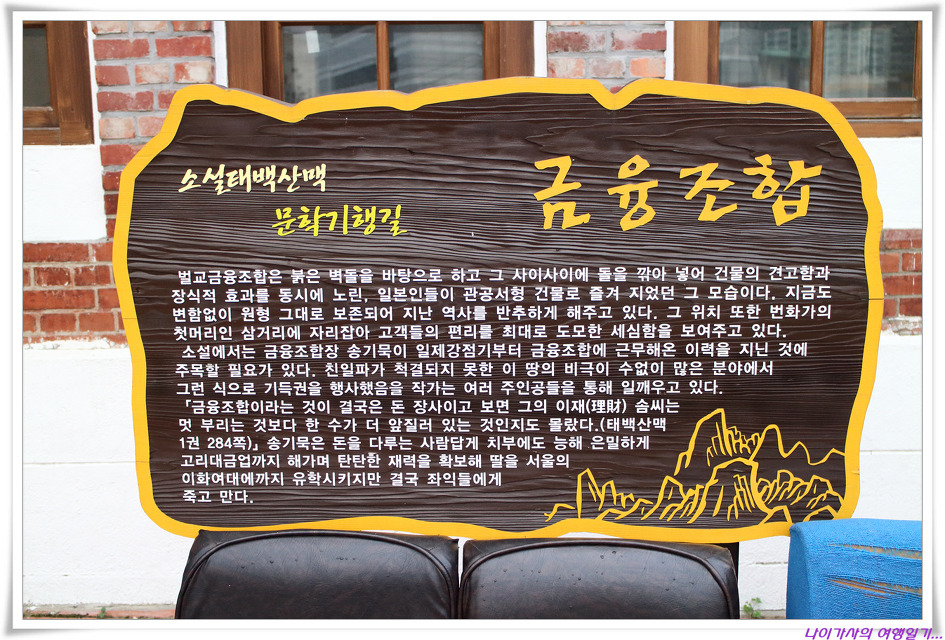 소설태백산맥
문학기행길
금융조합
벌교금융조합은 붉은 벽돌을 바탕으로 하고 그 사이사이에 돌을 깎아 넣어 건물의 견고함과
장식적 효과를 동시에 노린, 일본인들이 관공서형 건물로 즐겨 지었던 그 모습이다. 지금도
변함없이 원형 그대로 보존되어 지난 역사를 반추하게 해주고 있다. 그 위치 또한 번화가의
첫머리인 삼거리에 자리잡아 고객들의 편리를 최대로 도모한 세심함을 보여주고 있다.
소설에서는 금융조합장 송기묵이 일제강점기부터 금융조합에 근무해온 이력을 지닌 것에
주목할 필요가 있다. 친일파가 척결되지 못한 이 땅의 비극이 수없이 많은 분야에서
그런 식으로 기득권을 행사했음을 작가는 여러 주인공들을 통해 일깨우고 있다.
「금융조합이라는 것이 결국은 돈 장사이고 보면 그의 이재(理財) 솜씨는
멋 부리는 것보다 한 수가 더 앞질러 있는 것인지도 몰랐다.(태백산맥
1권 284쪽)」 송기묵은 돈을 다루는 사람답게 치부에도 능해 은밀하게
고리대금업까지 해가며 탄탄한 재력을 확보해 딸을 서울의
이화여대에까지 유학시키지만 결국 좌익들에게
죽고 만다.
나이가사의 여행일기...